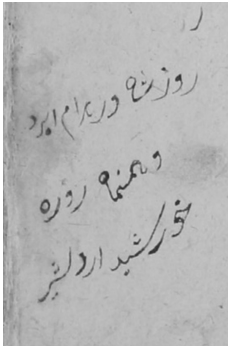 روز شاه ورهرام ایزد
و بهمنماه روزه
خورشید اردشیر